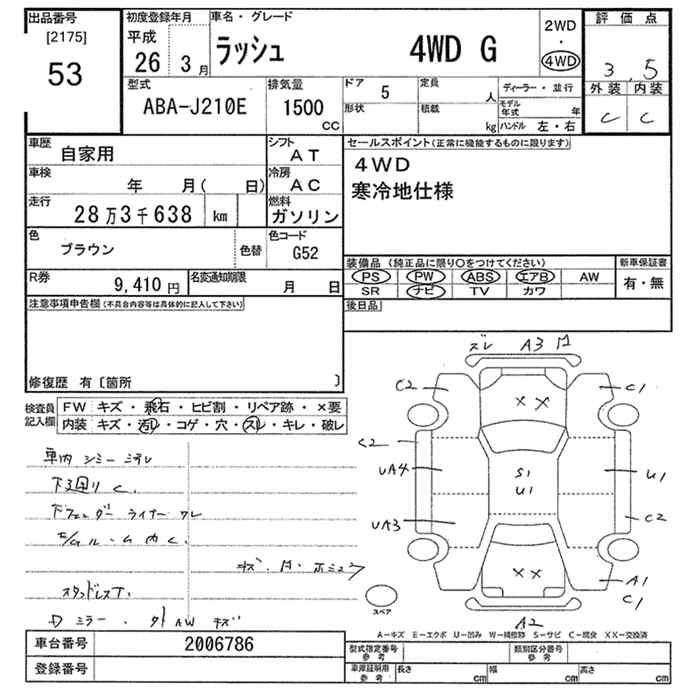 出品番号 初度登録年月 車名・グレード 2WD 評価点
[2175] 平成 ・
53 26 3月 ラッシュ 4WD G 4WD 3.5
型式 排気量 ドア 5 定員 人 ディーラー・並行 外装 内装
ABA-J210E 1500 CC 形状 積載 kg モデル年式 年 C C
ハンドル 左・右
車歴 自家用 シフト AT セールスポイント(正常に機能するものに限ります)
車検 年 月( 日) 冷房 AC 4WD
走行 28万3千638 km 燃料 ガソリン 寒冷地仕様
色 ブラウン 色替 色コード G52
装備品(純正品に限り○をつけてください) 新車保証書
R券 9,410円 名変通知期限 月 日 PS PW ABS エアB AW 有・無
SR ナビ TV カワ
注意事項申告欄(不具合内容等は具体的に記入して下さい) 後日品
修復歴 有〔箇所 〕
ズレ A3
検査員記入欄 FW キズ・飛石・ヒビ割・リペア跡・×要
内装 キズ・汚レ・コゲ・穴・スレ・キレ・破レ
C2 C1
×× 
C2
車内
UA4 S1 U1 U1
下廻り C.
UA3 C2
××
A1
C1
スペア
A2
Dミラー・ AW キズ
A-キズ E-エクボ U-凹み W-補修跡 S-サビ C-腐食 XX-交換済
車台番号 2006786 型式指定番号 参考 類別区分番号 参考
登録番号 車庫証明用 参考 長さ cm 幅 cm 高さ cm